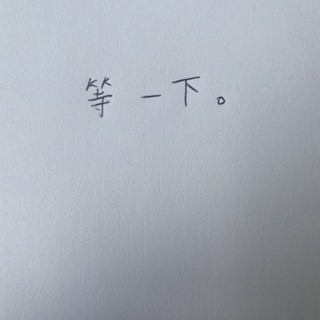 等一下。